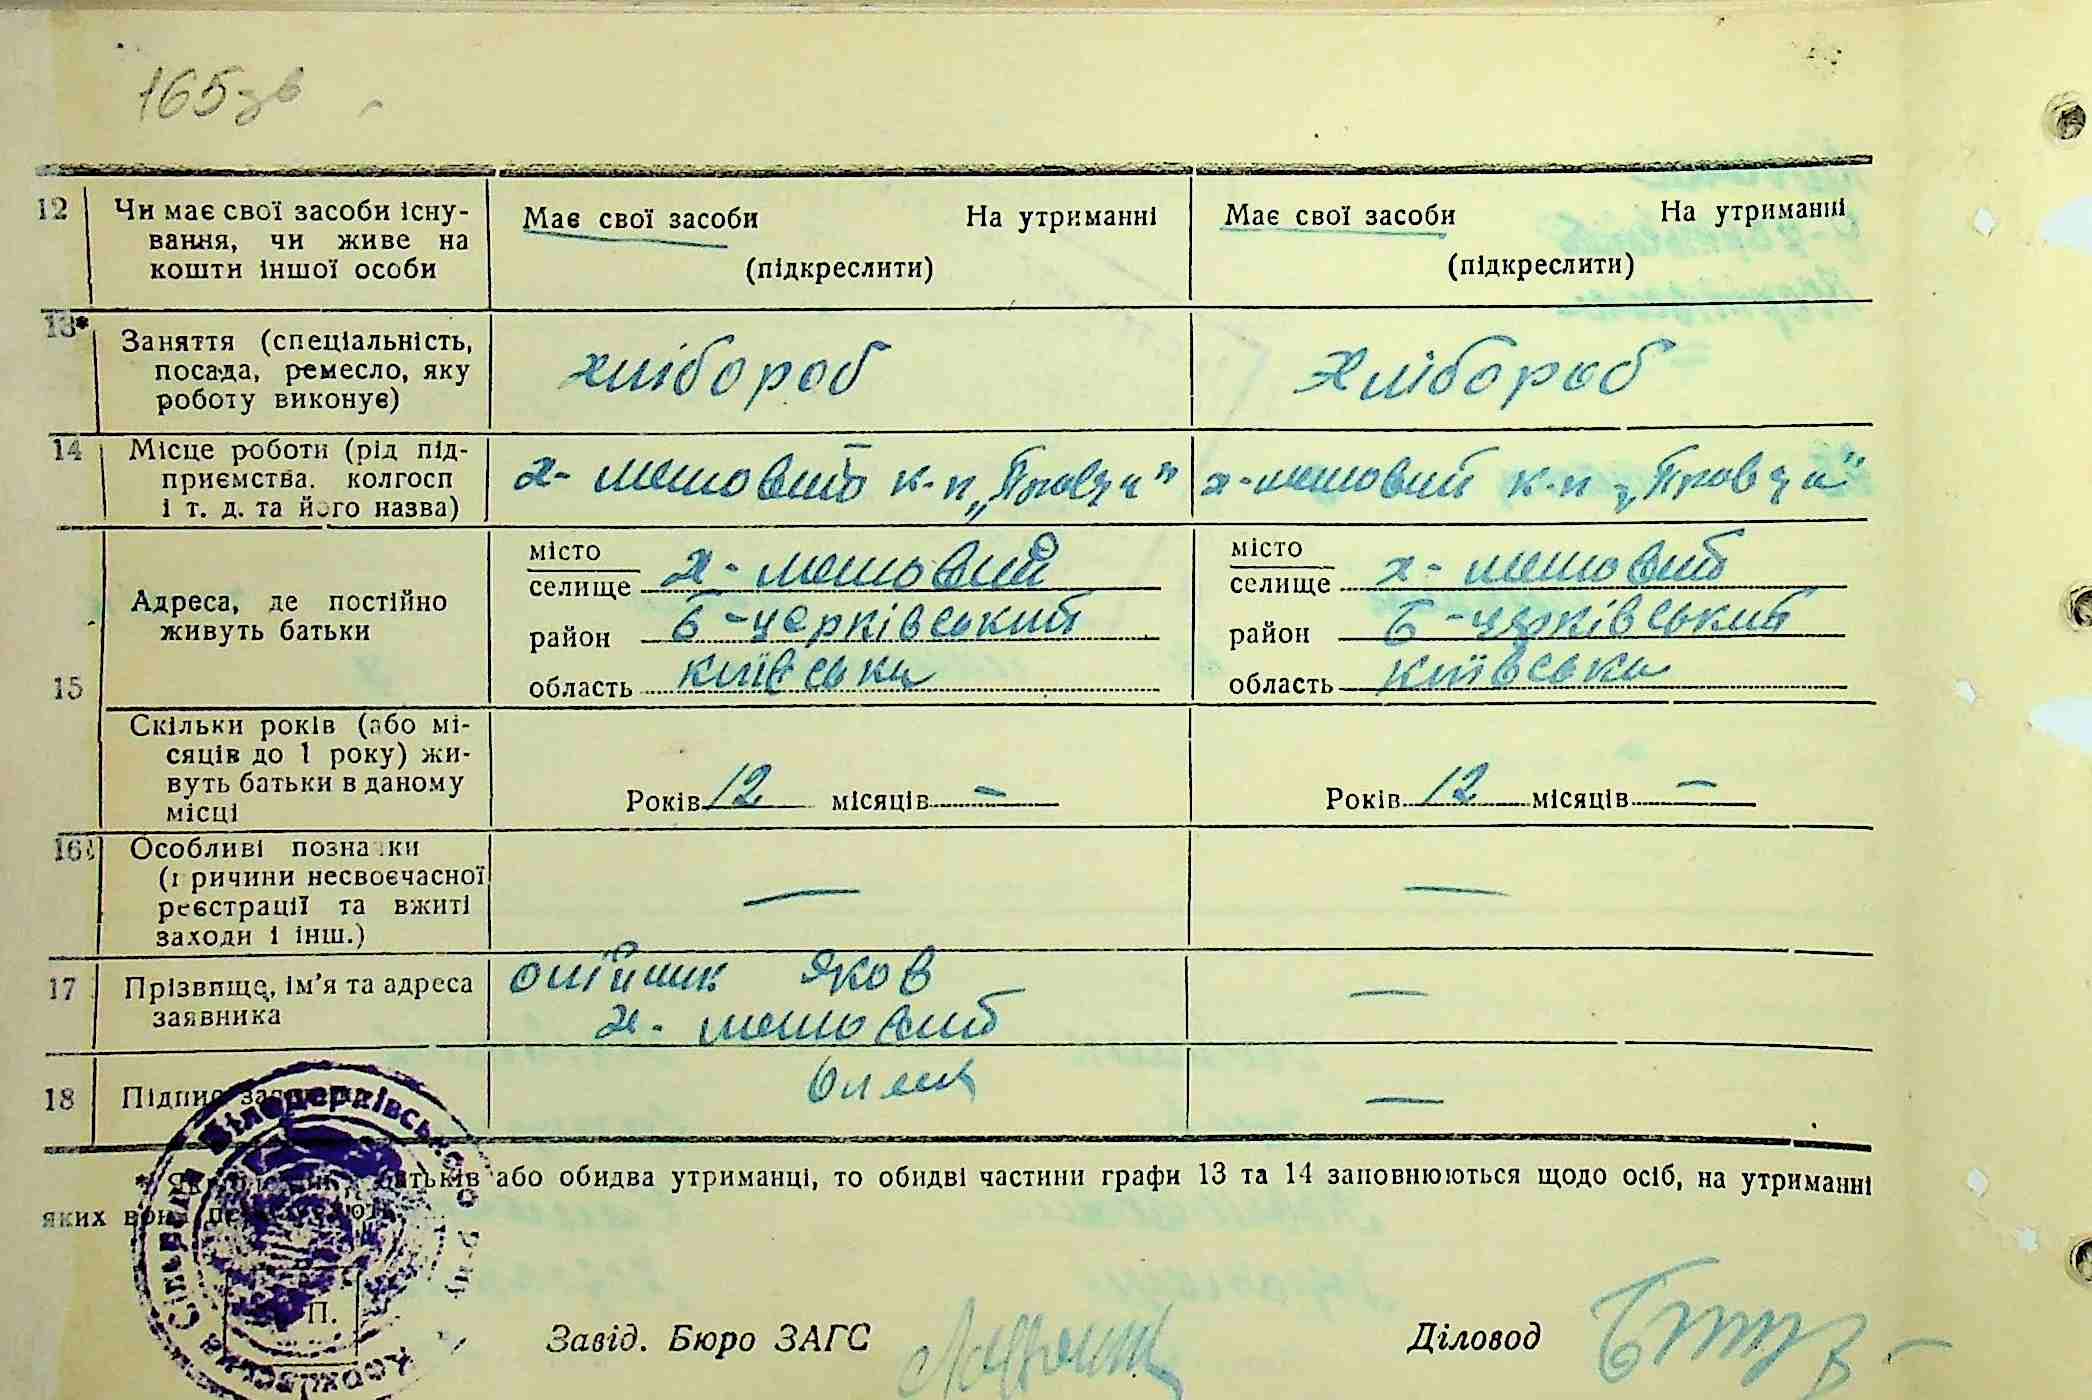 165зв
12 Чи має свої засоби існу-
вання, чи живе на
кошти іншої особи
Має свої засоби На утриманні
(підкреслити)
Має свої засоби На утриманні
(підкреслити)
13*
Заняття (спеціальність,
посада, ремесло, яку
роботу виконує)
хлібороб
Хлібороб
14 Місце роботи (рід під-
приємства. колгосп
і т. д. та його назва)
х- шешовий к-п „Правда"
х-шешовий к-п „Правда"
15
Адреса, де постійно
живуть батьки
місто
селище х- шешовий
район Б-черківський
область київська
місто
селище х- шешовий
район Б-черківський
область київська
Скільки років (або мі-
сяців до 1 року) жи-
вуть батьки в даному
місці
Років 12 місяців —
Років 12 місяців —
16 Особливі познаки
(причини несвоєчасної
реєстрації та вжиті
заходи і інш.)
—
—
17 Прізвище, ім'я та адреса
заявника
олійник Яков
х- шешовий
—
18 Підпис
—
* батьків або обидва утриманці, то обидві частини графи 13 та 14 заповнюються щодо осіб, на утриманні
яких вони
П.
Завід. Бюро ЗАГС
Діловод